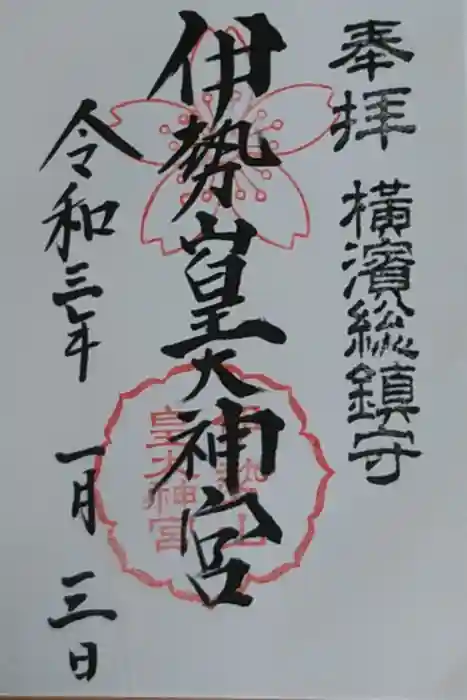 奉拝 横濱総鎮守
伊勢山皇大神宮
伊勢山
皇大神宮
令和三年 一月 三日